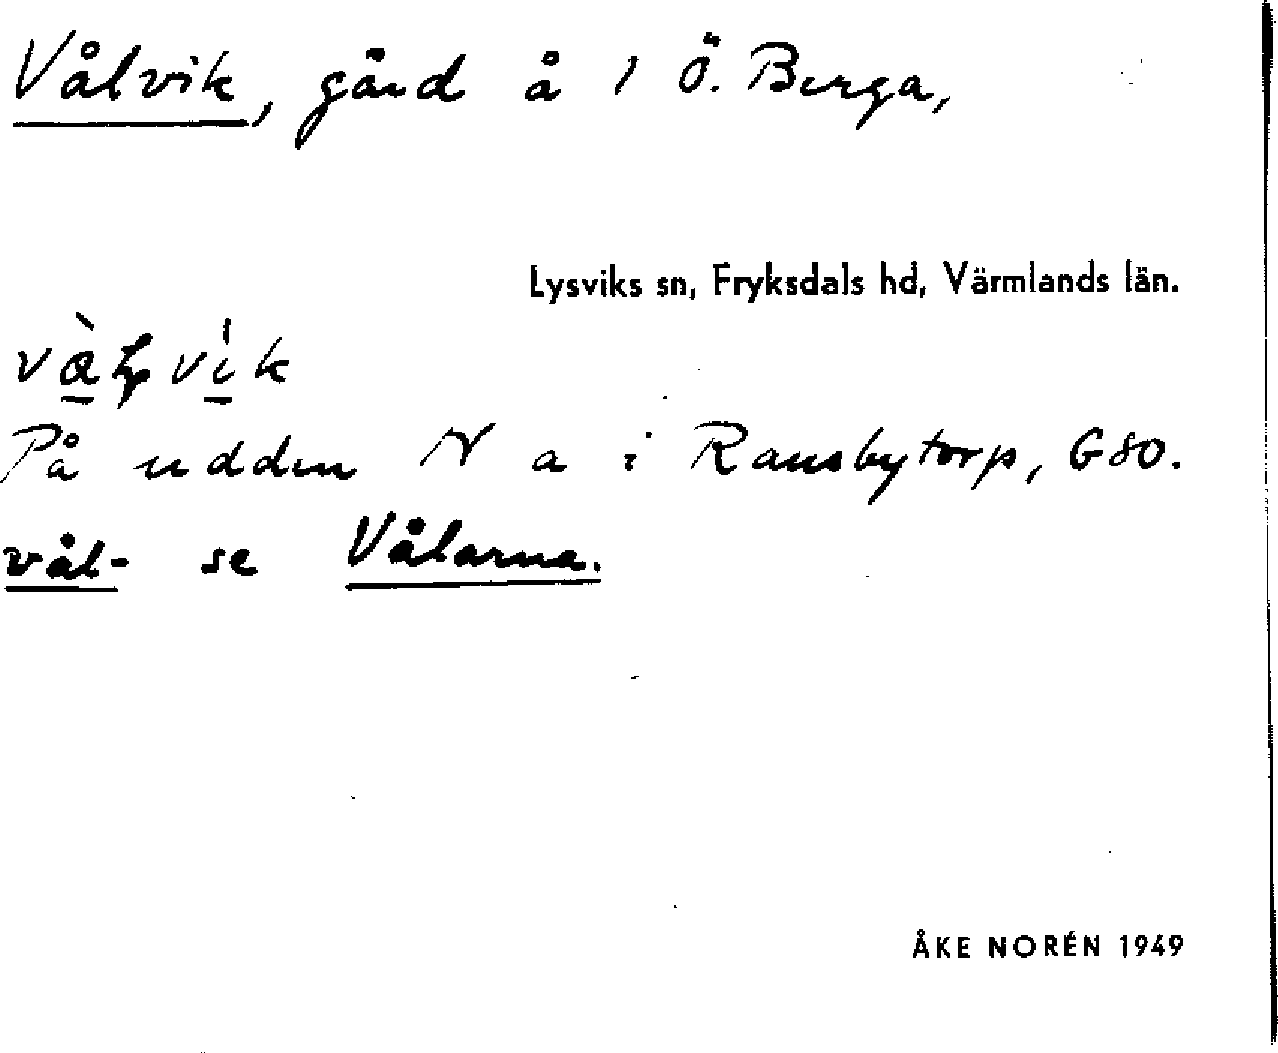 Vålvik, gård å 1 Ö. Berga,
Lysviks sn, Fryksdals hd, Värmlands län.
På udden N a i Ransbytorp, G80.
vål- se Vålarna.
ÅKE NORÉN 1949